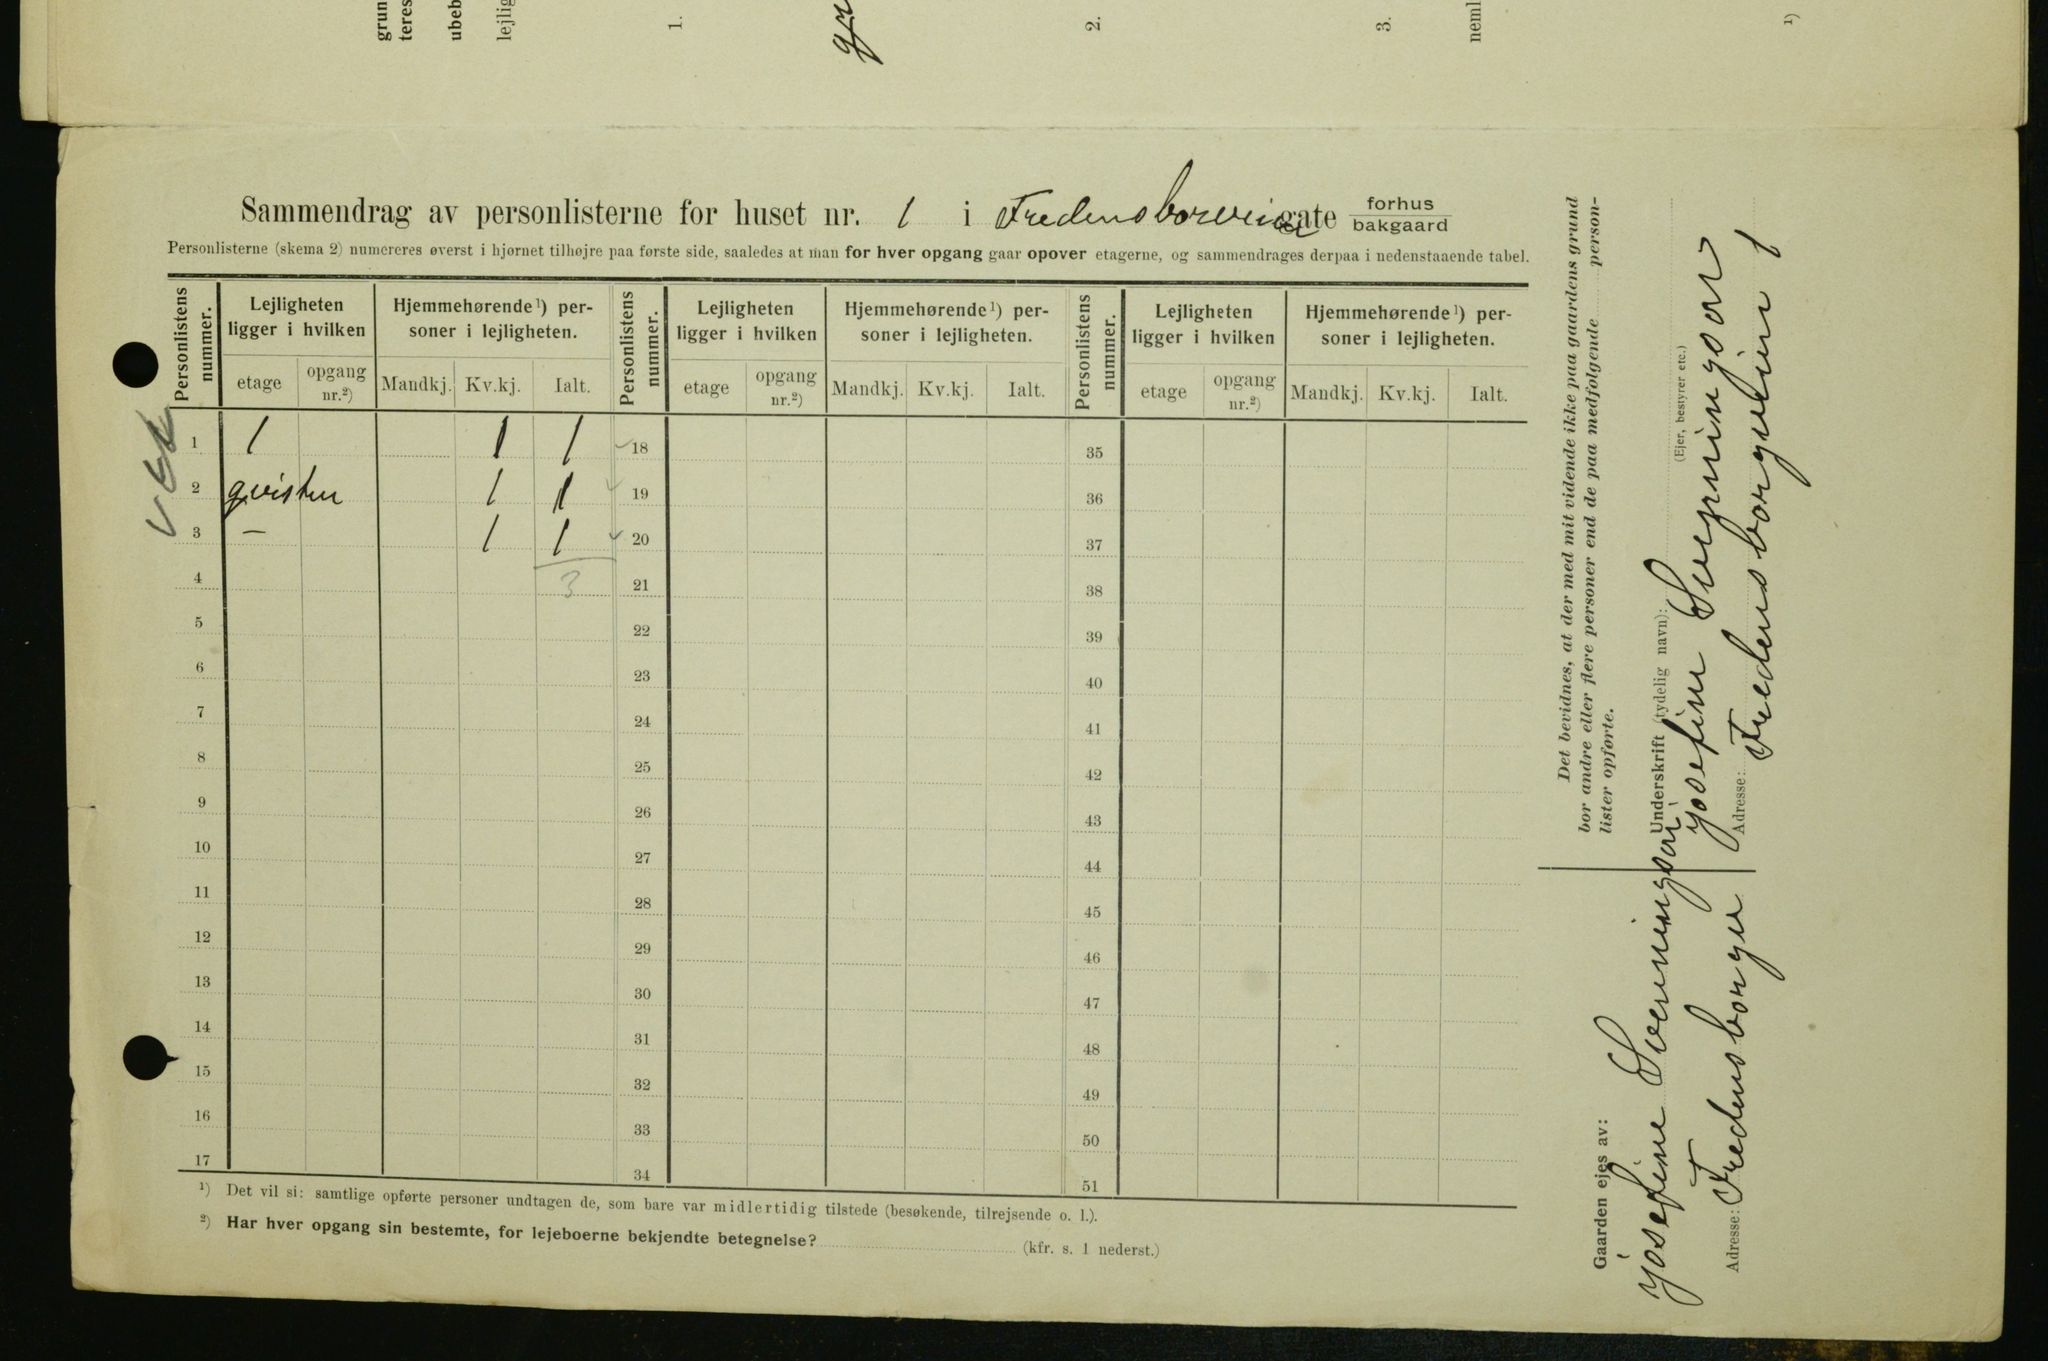 grun
teres
ubeb
lejlig
1.
gr
2.
3.
neml
¹)
Sammendrag av personlisterne for huset nr. 1 i Fredensborveien gate forhus bakgaard
Personlisterne (skema 2) numereres øverst i hjørnet tilhøjre paa første side, saaledes at man for hver opgang gaar opover etagerne, og sammendrages derpaa i nedenstaaende tabel.
Personlistens nummer. Lejligheten ligger i hvilken Hjemmehørende¹) personer i lejligheten. Personlistens nummer. Lejligheten ligger i hvilken Hjemmehørende¹) personer i lejligheten. Personlistens nummer. Lejligheten ligger i hvilken Hjemmehørende¹) personer i lejligheten.
etage opgang nr.²) Mandkj. Kv.kj. Ialt. etage opgang nr.²) Mandkj. Kv.kj. Ialt. etage opgang nr.²) Mandkj. Kv.kj. Ialt.
1 1 1 1 18 35
2 qvisten 1 1 19 36
3 — 1 1 20 37
4 3 21 38
5 22 39
6 23 40
7 24 41
8 25 42
9 26 43
10 27 44
11 28 45
12 29 46
13 30 47
14 31 48
15 32 49
16 33 50
17 34 51
¹) Det vil si: samtlige opførte personer undtagen de, som bare var midlertidig tilstede (besøkende, tilrejsende o. l.).
²) Har hver opgang sin bestemte, for lejeboerne bekjendte betegnelse? (kfr. s. 1 nederst.)
Det bevidnes, at der med mit vidende ikke paa gaardens grund
bor andre eller flere personer end de paa medfølgende person-
lister opførte.
Underskrift (tydelig navn):
Josefine Sveningsen
(Ejer, bestyrer etc.)
Adresse: Fredensborgveien 1
Gaarden ejes av:
Josefine Sveningsen
Adresse: Fredensborgve